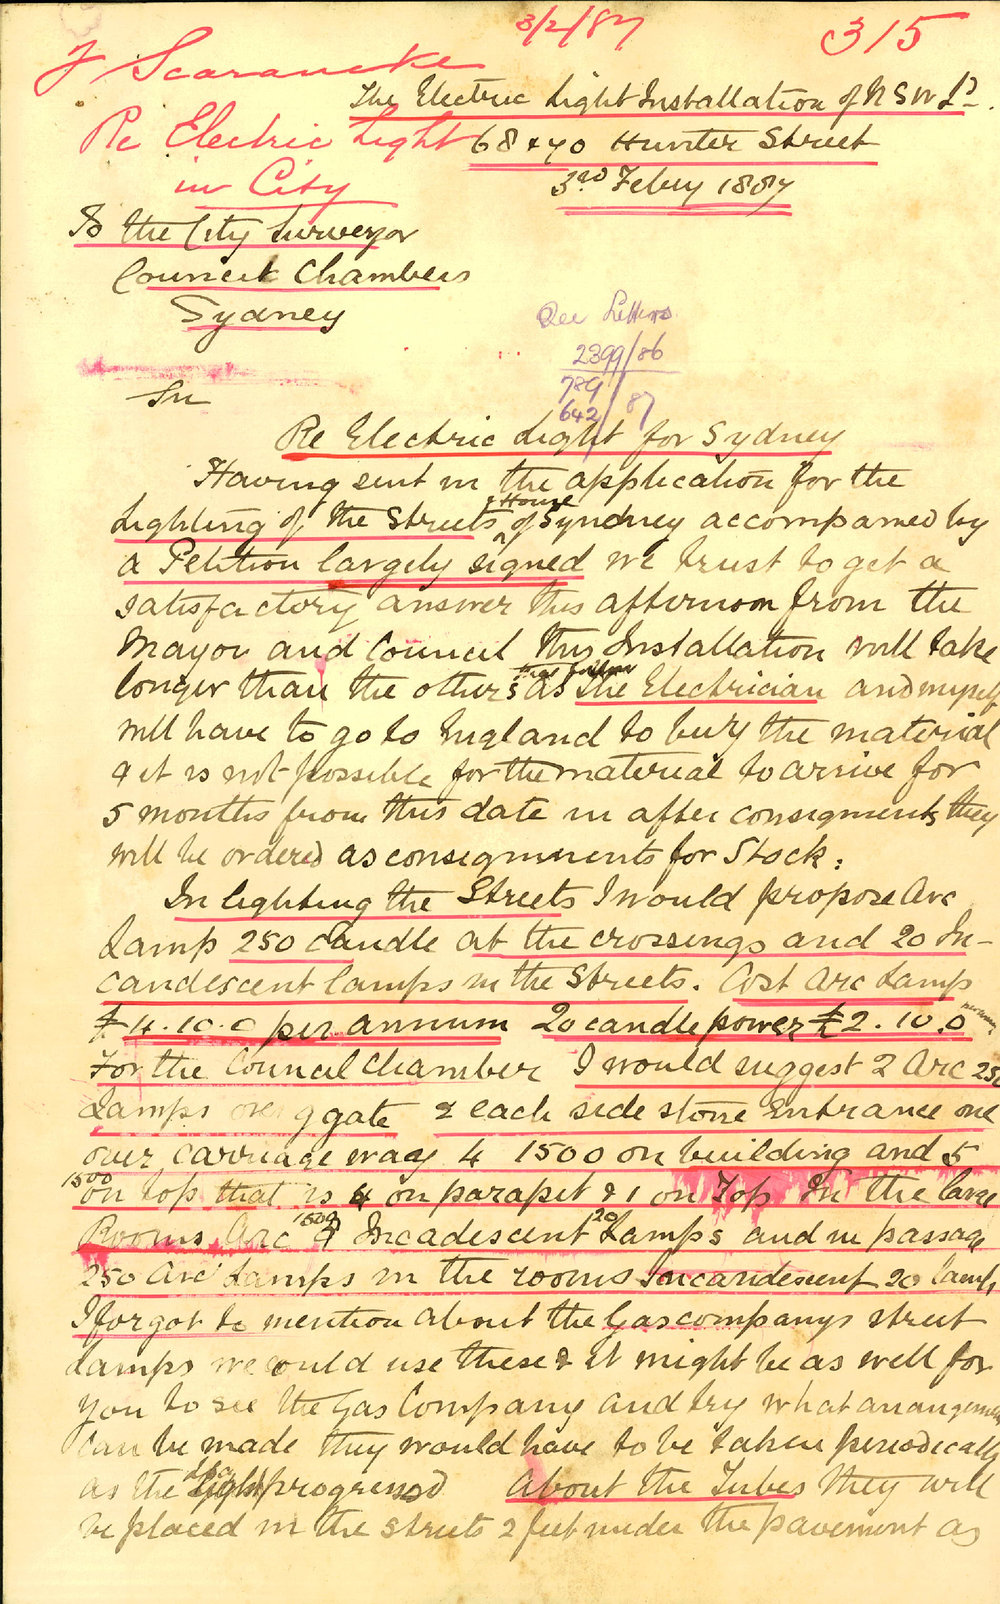 3/2/87
315
J Scarancke
Re Electric Light
in City
The Electric Light Installation of N S W Ld.
68 & 70 Hunter Street
3rd Febry 1887
To the City Surveyor
Council Chambers
Sydney
See Letters
2399/86
789
642/87
Sir
Re Electric Light for Sydney
Having sent in the application for the
Lighting of the Streets & House of Syndney accompanied by
a Petition largely signed we trust to get a
satisfactory answer this afternoon from the
Mayor and Council this Installation will take
longer than the others as the Electrician and myself
will have to go to England to buy the material
& it is not possible for the material to arrive for
5 months from this date in after consignments they
will be ordered as consignments for Stock.
In lighting the Streets I would propose Arc
Lamp 250 candle at the crossings and 20 In-
candescent lamps in the Streets. Cost Arc Lamp
£4.10.0 per annum 20 candle power £2.10.0
For the Council Chamber I would suggest 2 Arc 250
Lamps over g gate & each side stone Entrance one
over carriage way 4 1500 on building and 5
1500 on top that is 4 on parapet & 1 on Top In the large
Rooms Arc 1500 & Incadescent 20 Lamps and in passage
250 Arc Lamps in the rooms Incandescent 20 Lamps
I forgot to mention about the Gas companys street
Lamps we could use these & it might be as well for
you to see the Gas Company and try what arrangements
can be made they would have to be taken periodically
as the light progressed About the Tubes they will
be placed in the streets 2 feet under the pavement as